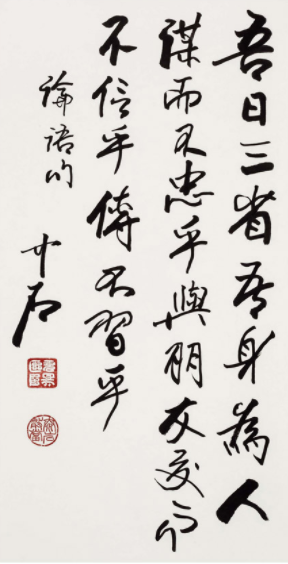 吾日三省吾身為人
謀而不忠乎與朋友交而
不信乎傳不習乎
論語句
中石